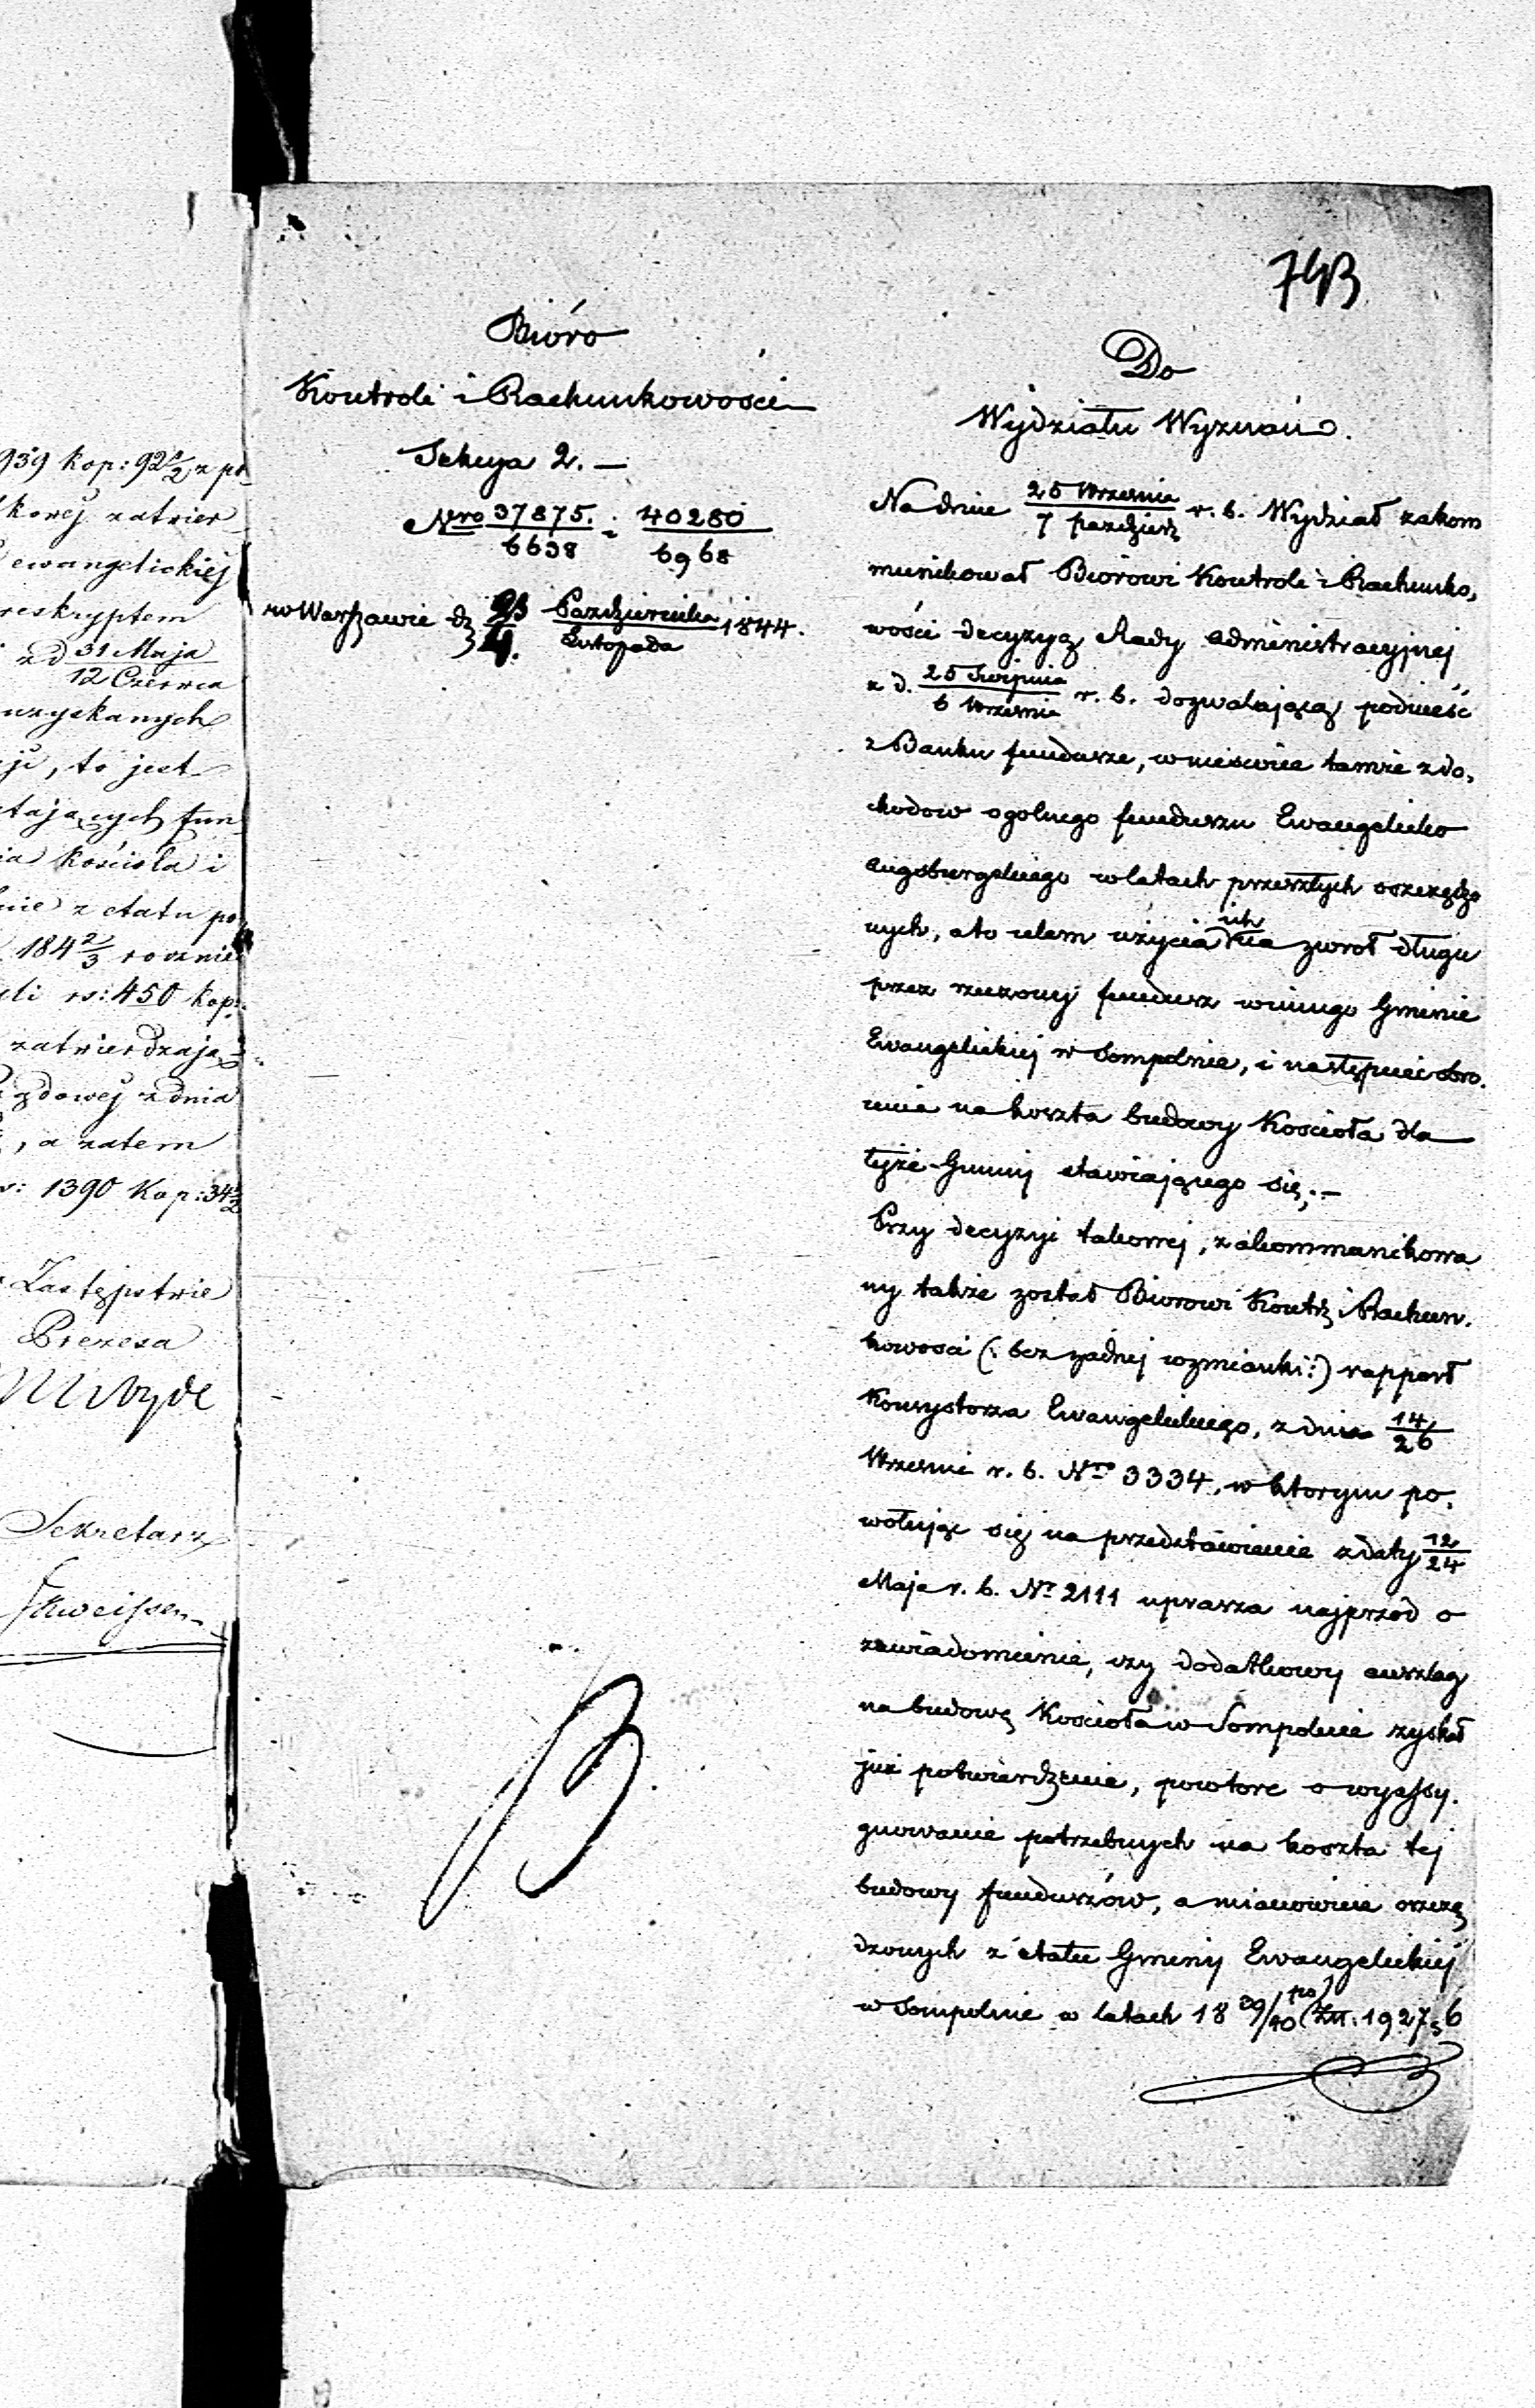 939 kop: 92 1/2 z po
kowej zatwier
ewangelickiej
reskryptem
z d 31 Maja
12 Czerwca
uzyskanych
ji, to jest
tających fun
ia kościoła i
nie z etatu po
184 2/3 roznie
li rs: 450 kop:
zatwierdzają
zdowej z dnia
, a zatem
s: 1390 Kop: 34 1/2
Zastępstwie
Prezesa
Sekretarz
743
Bióro
Kontroli i Rachunkowości
Sekcya 2. —
Nro 37875. : 40280
6638 6968
w Warszawie d 23 Października 1844.
4. Listopada
Do
Wydziału Wyznań.
Na dniu 25 Września r. b. Wydział zakom
7 paździer
munikował Biorowi Kontroli i Rachunko,
wości decyzyą Rady Administracyjnej
z d. 25 Sierpnia r. b. dozwalającą podnieść
6 Września
z Banku fundusze, wniesione tamże z do,
chodow ogolnego funduszu Ewangelicko
Augsburgskiego w latach przeszłych oszczędzo
nych, a to celem użycia ich na zwrot długu
przez rzeczony fundusz winnego Gminie
Ewangelickiej w Sompolnie, i następnie obro.
cenia na koszta budowy Kościoła dla
tejże Gminy stawiającego się; —
Przy decyzyi takowej, zakommunikowa
ny także został Biorowi Kontr i Rachun.
kowosci (: bez żadnej wzmianki :) rapport
Konsystorza Ewangelickiego, z dnia 14/26
Wrzesnia r. b. Nro 3334, w ktorym po,
wołując się na przedstawienie z daty 12/24
Maja r. b. Nr 2111 uprasza najprzód o
zawiadomienie, czy dodatkowy anszlag
na budowę Kościoła w Sompolnie zyskał
już potwierdzenie, powtore o wyassy.
gnowanie potrzebnych na koszta tej
budowy funduszów, a mianowicie oszczę
dzonych z etatu Gminy Ewangelickiej
w Sompolnie w latach 18 39/40 po Złł. 1927, 6